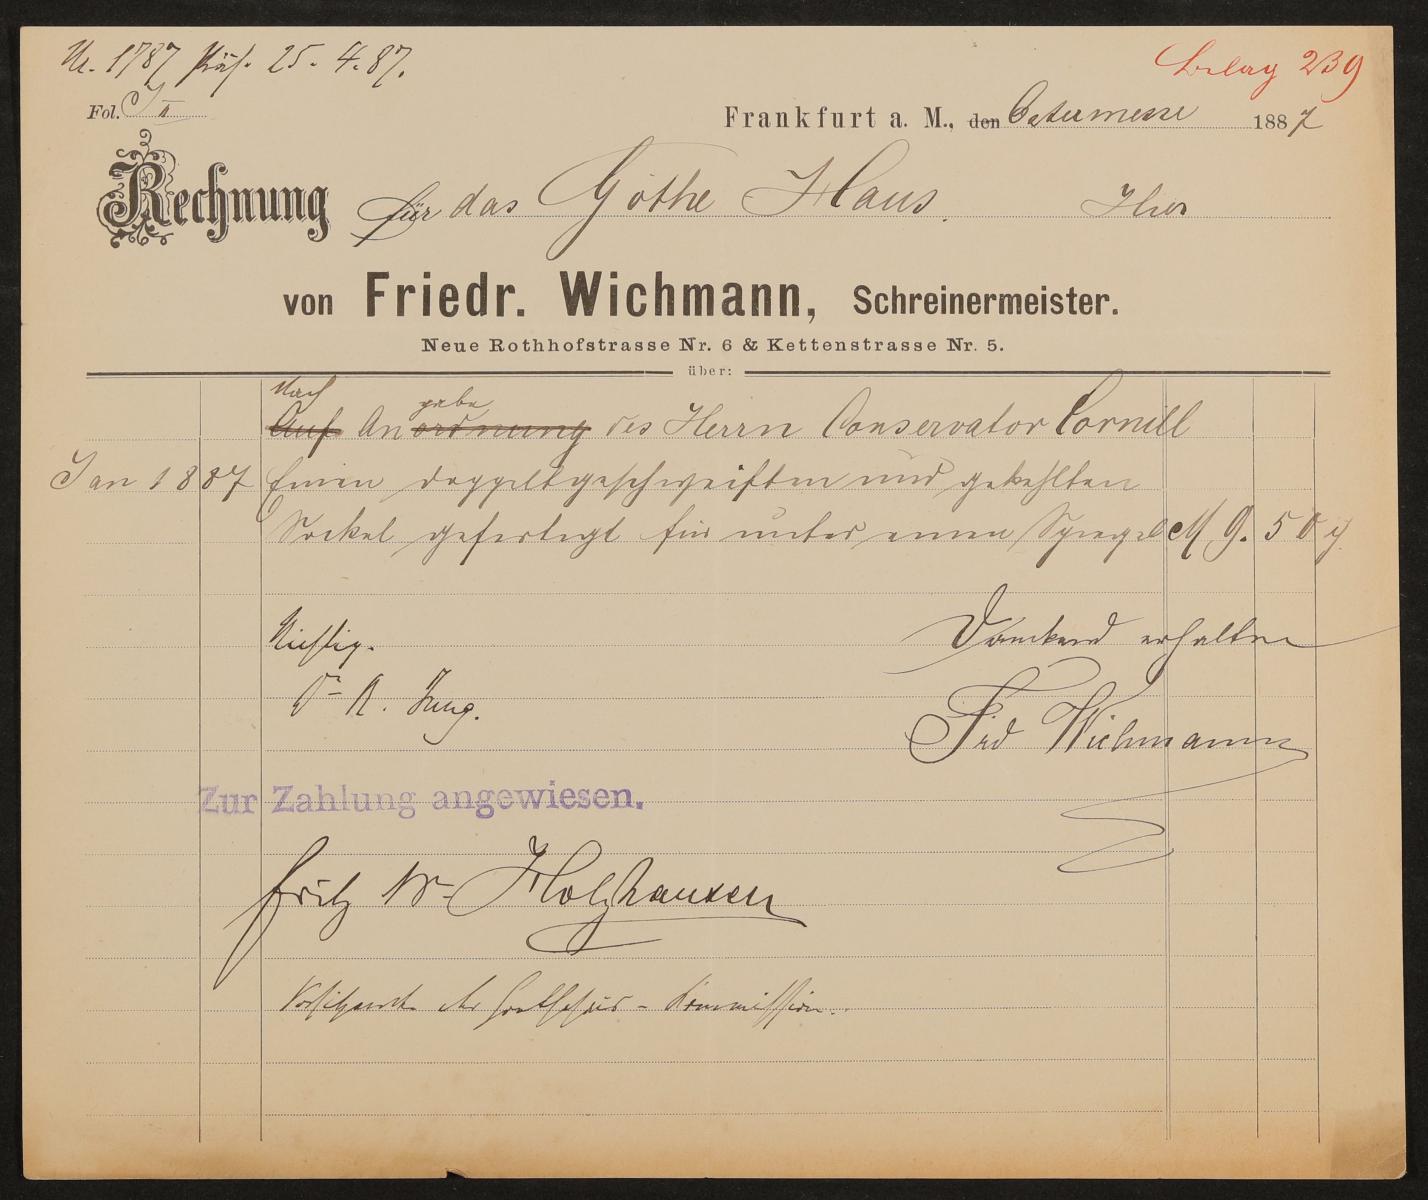 Nr. 1787 Präs. 25. 4. 87.
Belag 239
Fol. I II
Frankfurt a. M., den Ostermesse 1887
Rechnung für das Göthe Haus. Hier
von Friedr. Wichmann, Schreinermeister.
Neue Rothhofstrasse Nr. 6 & Kettenstrasse Nr. 5.
über:
Nach gabe
Auf Anordnung des Herrn Conservator Cornill
Jan 1887 Einen doppeltgeschweiften und gekehlten
Sockel gefertigt für unter einen Spiegel M 9. 50 ₰
Richtig. Dankend erhalten
Dr. R. Jung. Frd Wichmann
Zur Zahlung angewiesen.
Fritz Holzhausen
Vorsitzender der Goethehaus-Kommission.